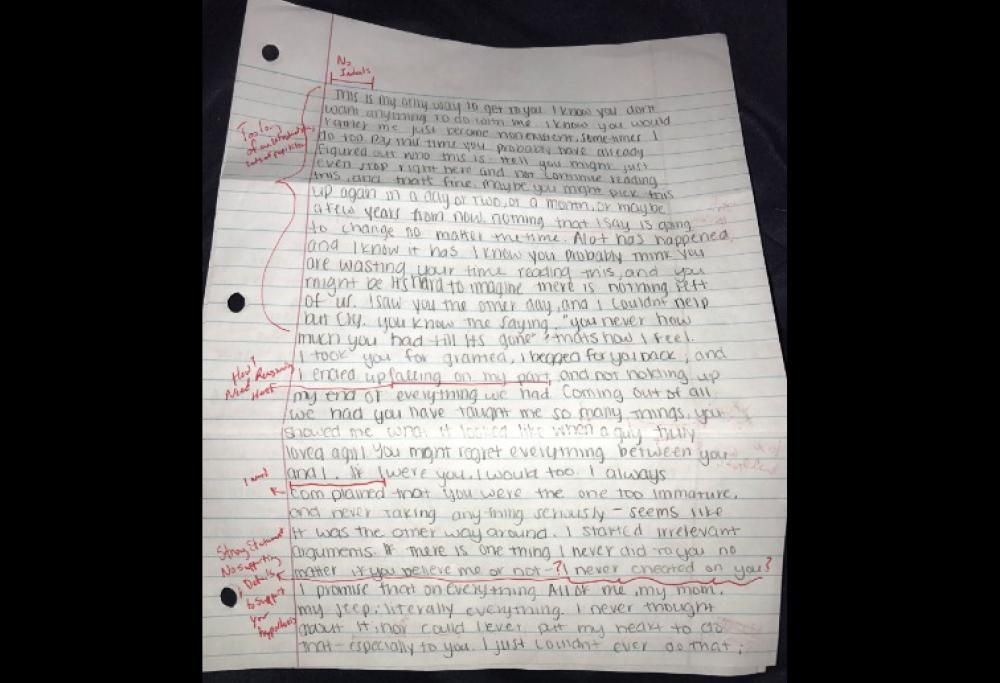 No
Indents
Too long
of an introduction
Lots of repetition
This is my only way to get to you I know you don't
want anything to do with me, I know you would
rather me just become nonexistent, sometimes I
do too. By this time you probably have already
figured out who this is. Hell you might just
even stop right here and not continue reading
this, and that's fine. maybe you might pick this
up again in a day or two, or a month, or maybe
a few years from now. nothing that I say is going
to change no matter the time. Alot has happened,
and I know it has. I know you probably think you
are wasting your time reading this, and you
might be. It's hard to imagine there is nothing left
of us. I saw you the other day, and I couldn't help
but cry. you know the saying, "you never how
much you had till its gone" thats how I feel.
I took you for granted, I begged for you back, and
How?
Need Reasoning
Here
I ended up falling on my part, and not holding up
my end of everything we had. Coming out of all
we had you have taught me so many things, you
showed me what it looked like when a guy truly
loved a girl. You might regret everything between you
and I. If I were you, I would too. I always
complained that you were the one too immature,
and never taking anything seriously - seems like
it was the other way around. I started irrelevant
Strong Statement
No supporting
Details
to support
your
hypothesis
arguments. If there is one thing I never did to you no
matter if you believe me or not-? I never cheated on you?
I promise that on everything. All of me, my mom,
my jeep; literally everything. I never thought
about it; nor could I ever put my heart to do
that - especially to you. I just couldn't ever do that;